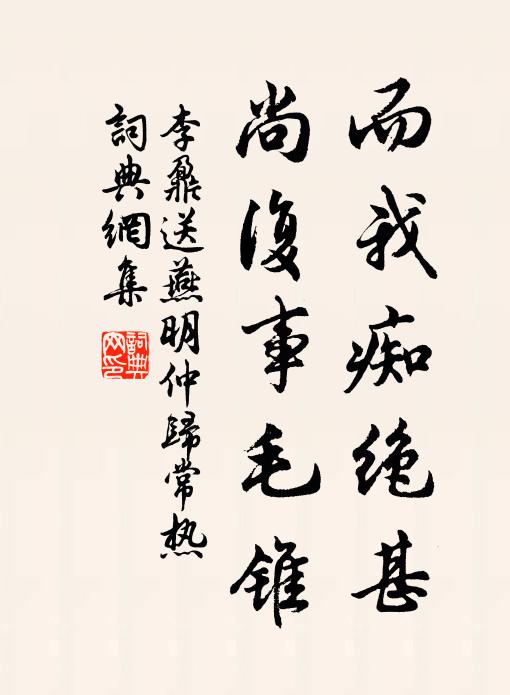 而我痴绝甚
尚復事毛錐
李鼐送燕明仲歸常熱
詞典網集
詞典網印